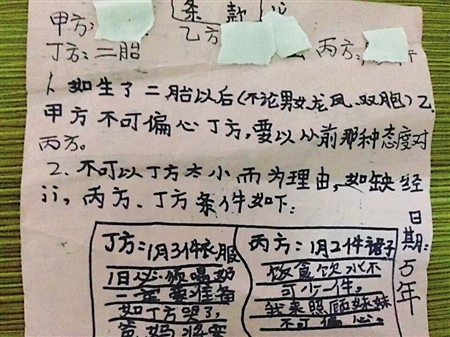 条款
甲方:
乙方
丙方:
丁方:二胎
1、如生了二胎以后(不论男女龙凤、双胞)乙、
甲方不可偏心丁方,要以从前那种态度对
丙方。
2、不可以丁方太小而为理由,如缺经
济,丙方、丁方条件如下:
丁方:1月3件衣服
1日必须喝奶
一定要准备
如丁方哭了,
爸妈将要
丙方:1月2件裙子
饭食饮水不
可少一件。
我来照顾妹妹
不可偏心。
日期:5年